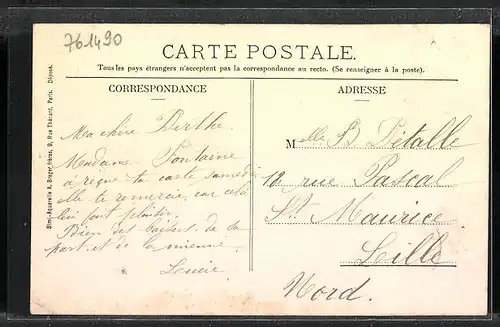 761490
CARTE POSTALE.
Tous les pays étrangers n'acceptent pas la correspondance au recto. (Se renseigner à la poste).
CORRESPONDANCE
Ma chère Berthe.
Madame Fontaine
a reçue ta carte samedi
elle te remercie, car cela
lui fait plaisir.
Bien des baisers de sa
part et de la mienne
Lucie
ADRESSE
Melle B Détalle
12 rue Pascal
St Maurice
Lille
Nord.
Simi-Aquarelle A. Breger frères, 9, Rue Thénard, Paris. Déposé.